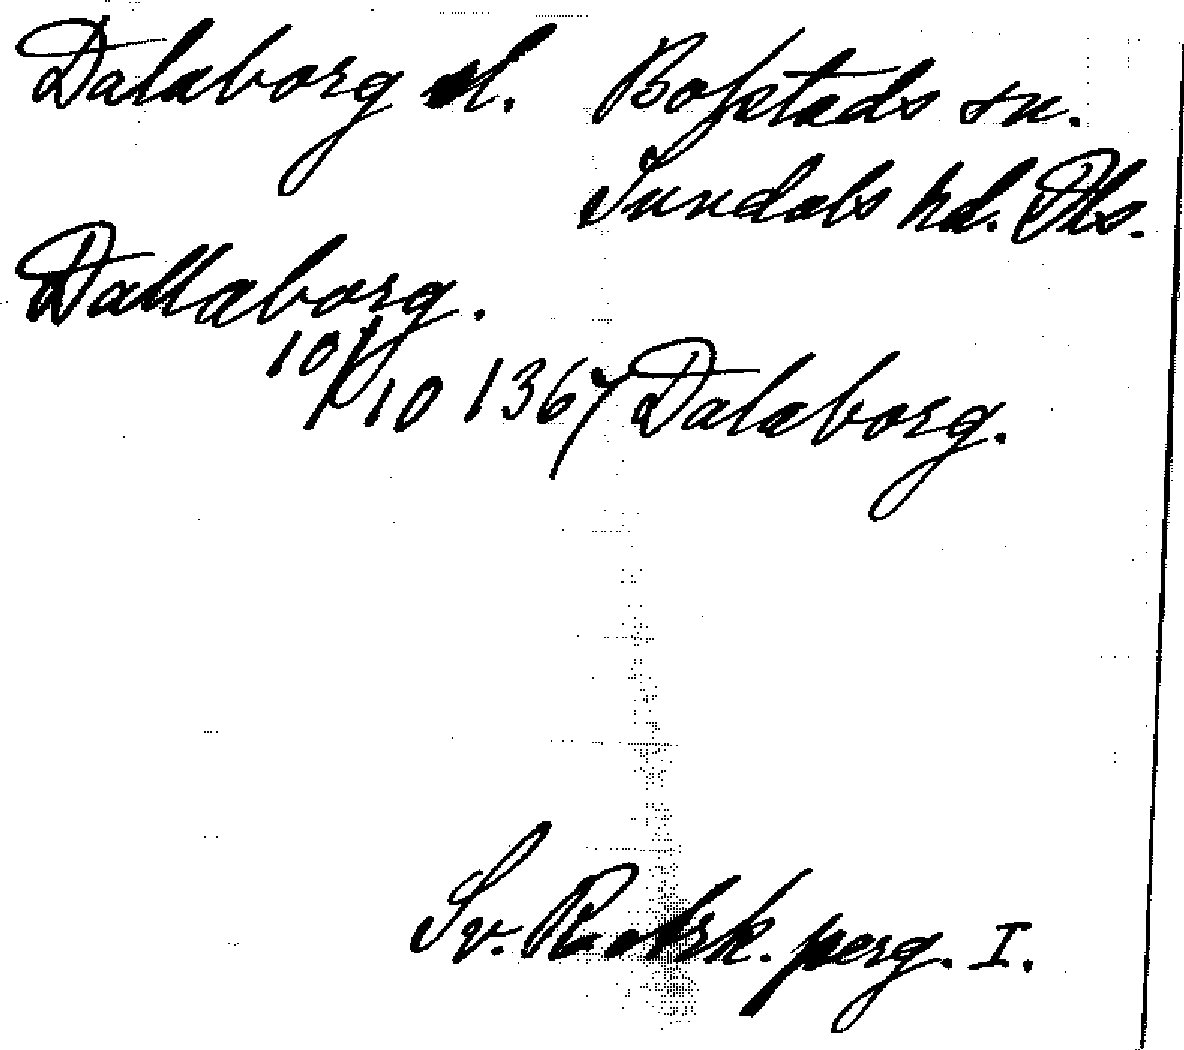 Dalaborg sl. Bolstads sn.
Sundals hd. Dls.
Dallaborg.
10/10 1367 Dalaborg.
Sv. Riksark. perg. I.